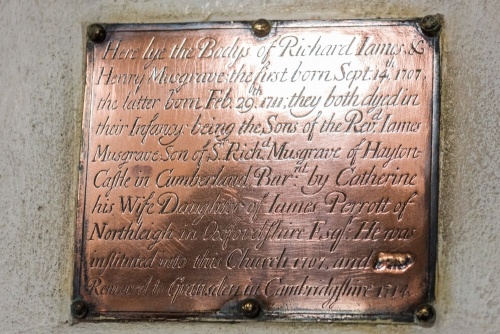 Here lye the Bodys of Richard James &
Henry Musgrave, the first born Sept. 14th 1707,
the latter born Feb. 29th 1711, they both dyed in
their Infancy being the Sons of the Revd. James
Musgrave Son of Sr. Richd. Musgrave of Hayton
Castle in Cumberland Barnt. by Catherine
his Wife Daughter of James Perrott of
Northleigh in Oxfordshire Esqr. He was
instituted into this Church 1707, and
Removed to Gransden in Cambridgshire 1714.